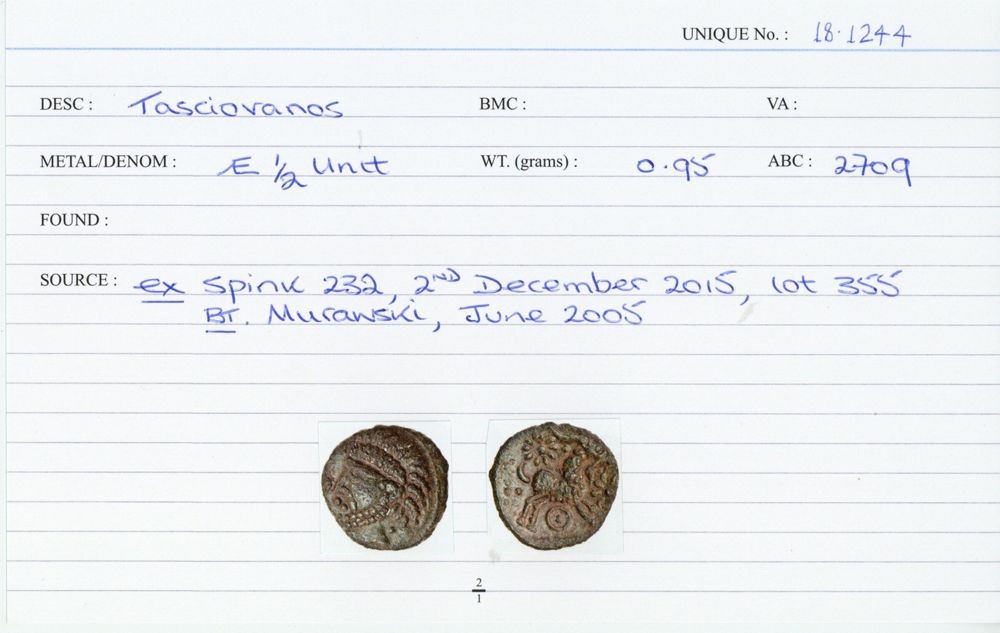 UNIQUE No. : 18.1244
DESC : Tasciovanos BMC : VA :
METAL/DENOM : Æ 1/2 Unit WT. (grams) : 0.95 ABC : 2709
FOUND :
SOURCE : ex Spink 232, 2ND December 2015, lot 355
BT. Murawski, June 2005
2/1